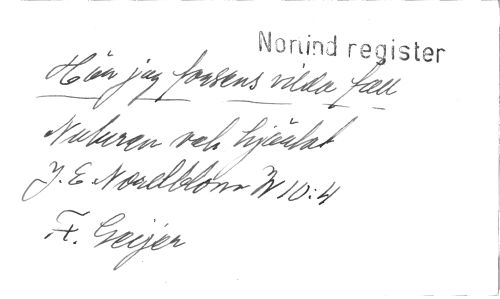 Norlind register
Hör jag forsens vilda fall
Naturen och hjertat
J. E. Nordblom W 10:4
F. Geijer